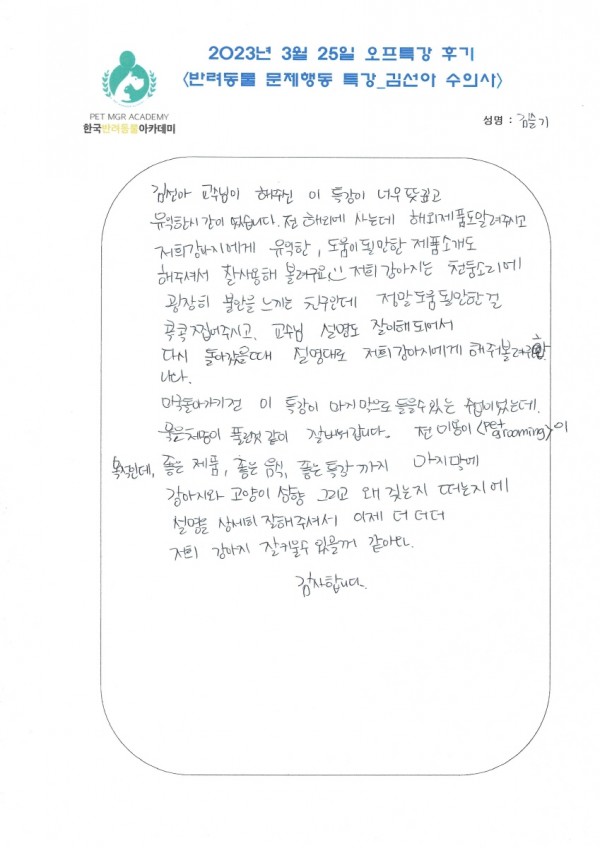 2023년 3월 25일 오프특강 후기
<반려동물 문제행동 특강_김선아 수의사>
PET MGR ACADEMY
한국반려동물아카데미
성명 : 김슬기
김선아 교수님이 해주신 이 특강이 너무 뜻깊고
유익한시간이 였습니다. 전 해외에 사는데 해외제품도알려주시고
저희강아지에게 유익한, 도움이될만한 제품소개도
해주셔서 잘사용해 볼려구요 저희 강아지는 천둥소리에
굉장히 불안을 느끼는 친구인데 정말도움될만한걸
콕콕찝어주시고, 교수님 설명도 잘이해되어서
다시 돌아갔을때 설명대로 저희강아지에게 해줘볼려구합
니다.
미국돌아가기전 이 특강이 마지막으로 들을수있는 수업이었는데,
묵은체증이 풀린것 같이 잘내려갑니다. 전 미용이<pet grooming>이
목적인데, 좋은 제품, 좋은 음식, 좋은특강 까지 마지막에
강아지와 고양이 성향 그리고 왜 짖는지 떠는지에
설명을 상세히 잘해주셔서 이제 더 더더
저희 강아지 잘키울수 있을꺼 같아요.
감사합니다.